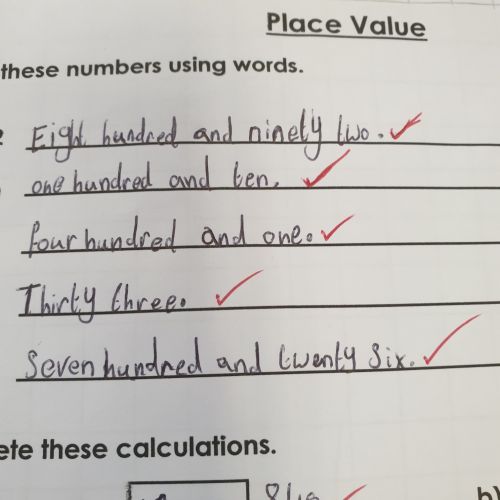 Place Value
these numbers using words.
Eight hundred and ninety two.
one hundred and ten.
four hundred and one.
Thirty three.
Seven hundred and twenty six.
ete these calculations.